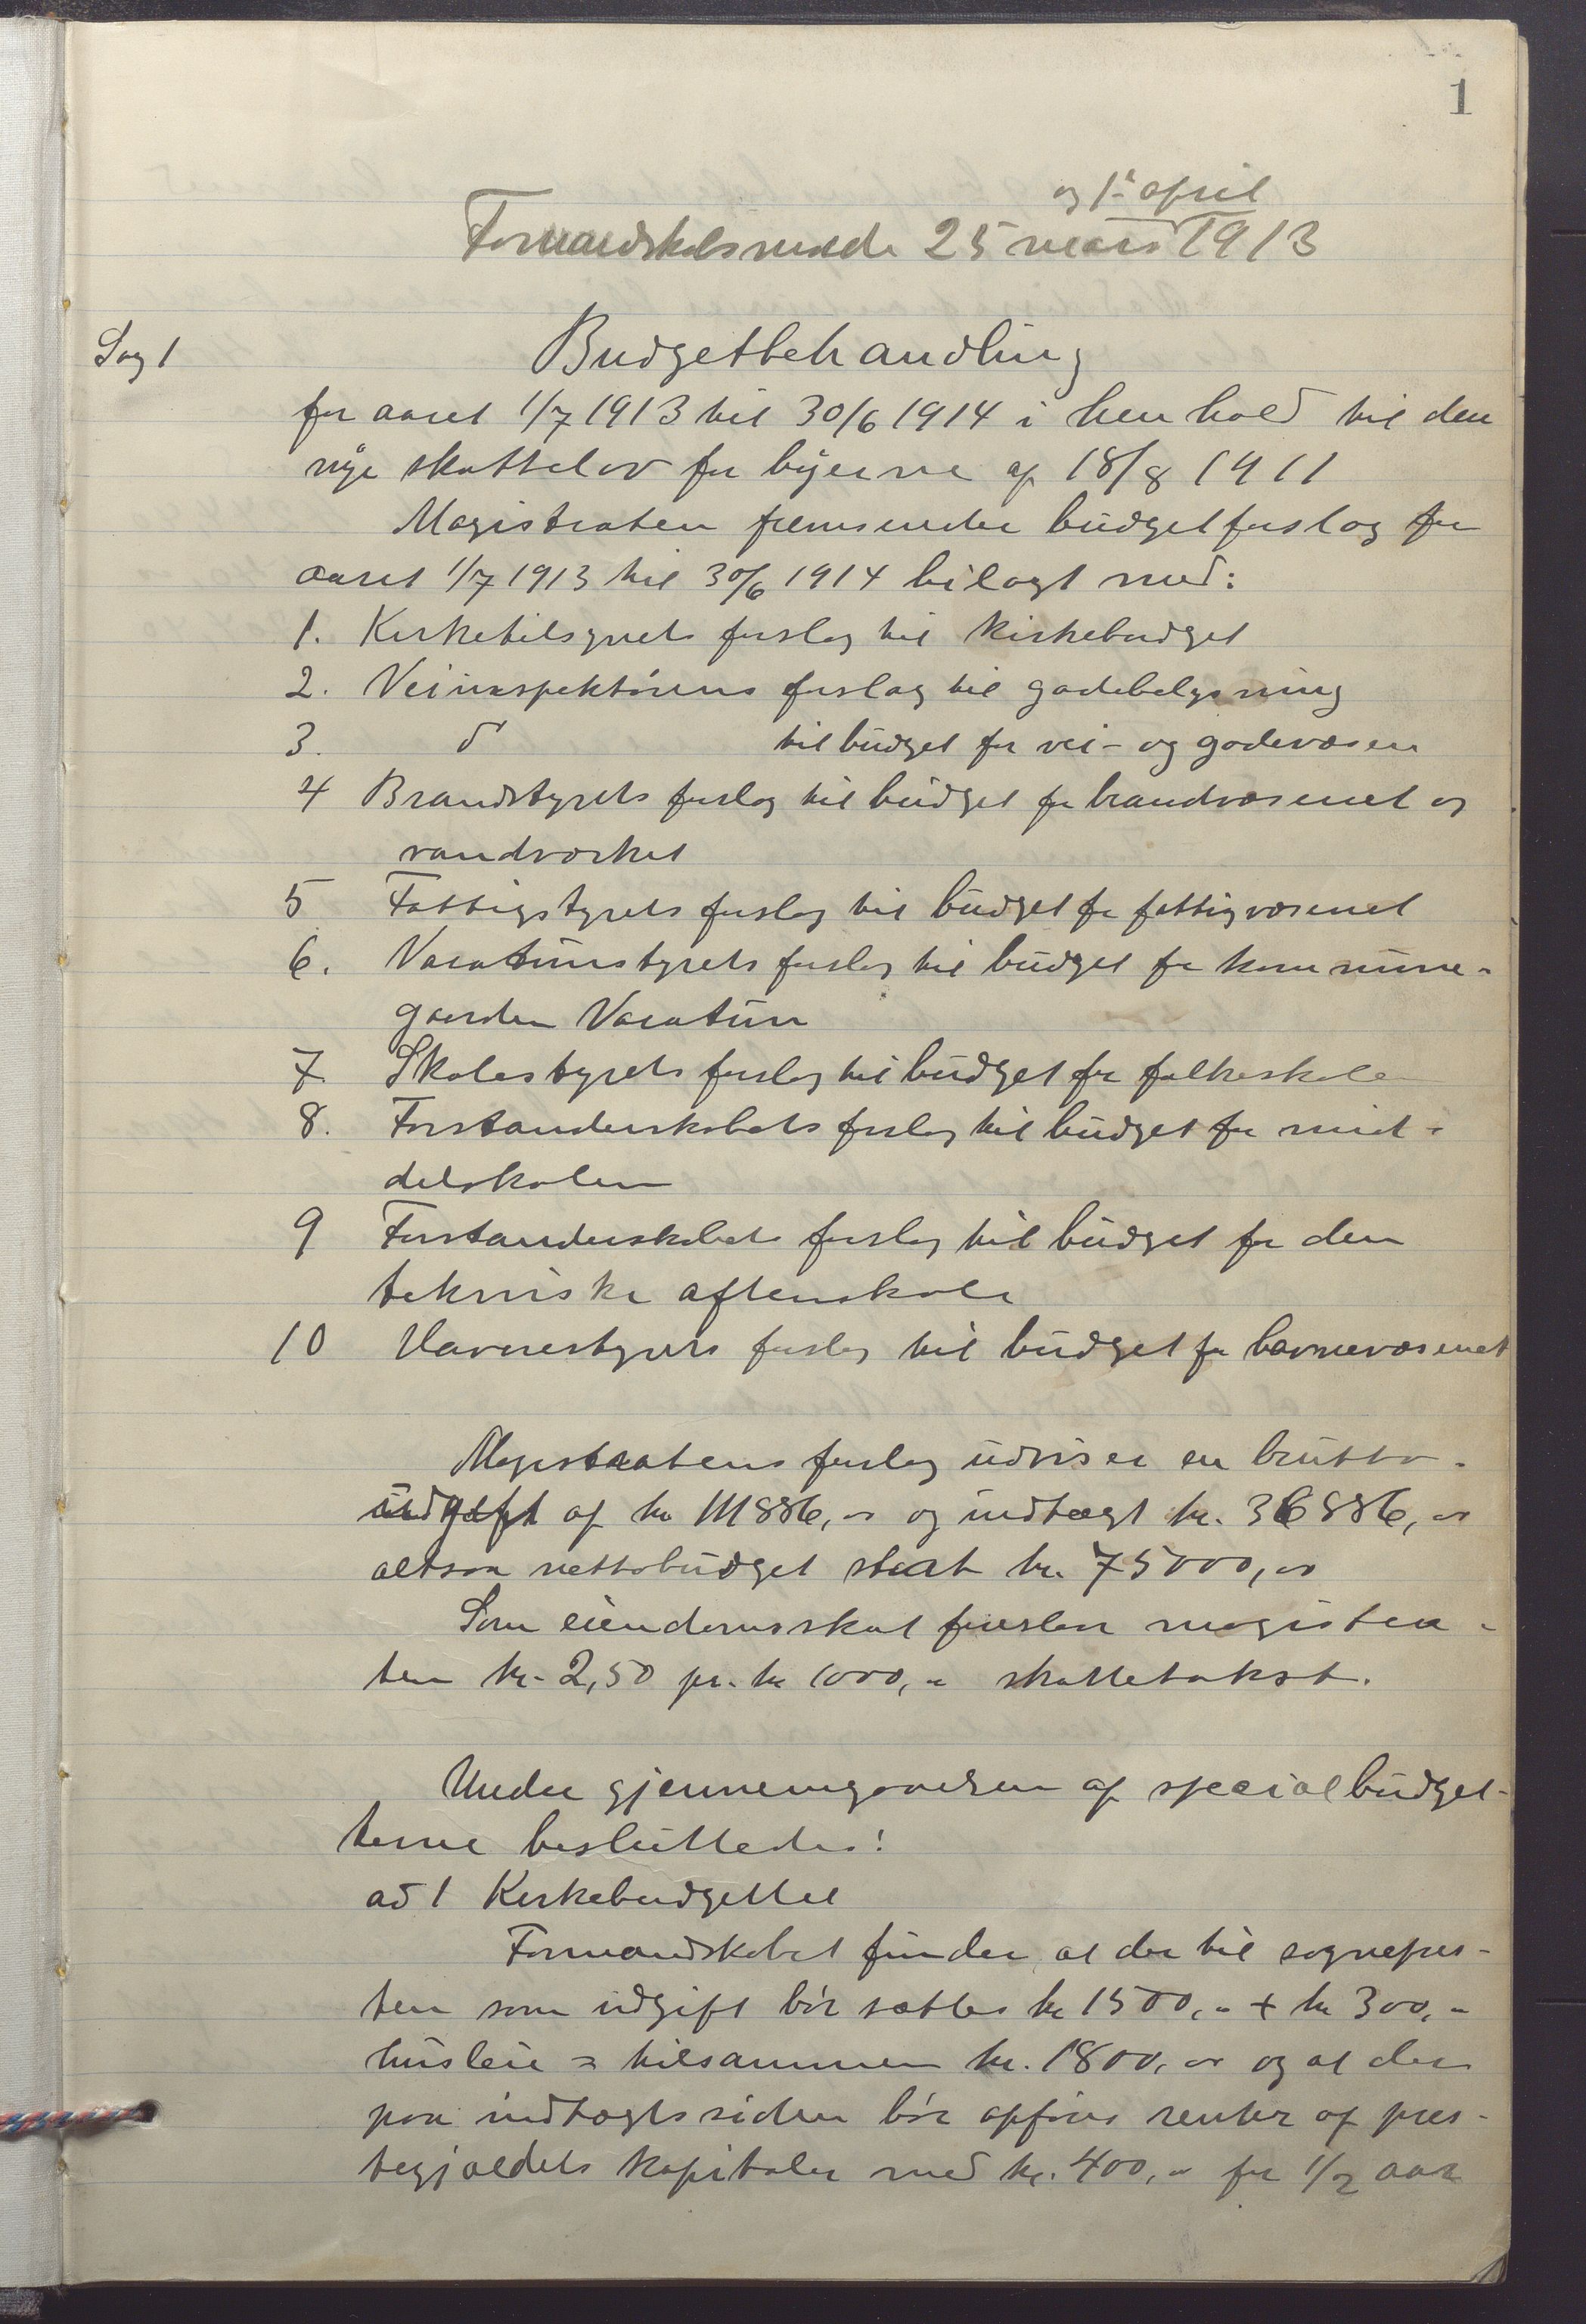 1
og 1ste april
Formandskabsmøde 25 mars 1913
Sag 1
Budgetbehandling
for aaret 1/7 1913 til 30/6 1914 i henhold til den
nye skattelov for byerne af 18/8 1911
Magistraten fremsender budgetforslag for
aaret 1/7 1913 til 30/6 1914 bilagt med:
1. Kirketilsynets forslag til kirkebudget
2. Veiinspektörens forslag til gadebelysning
3. do til budget for vei- og gadevæsen
4 Brandstyrets forslag til budget for brandvæsenet og
vandværket
5 Fattigstyrets forslag til budget for fattigvæsenet
6. Varatunstyrets forslag til budget for kommune-
gaarden Varatun
7. Skolestyrets forslag til budget for folkeskole
8. Forstanderskabets forslag til budget for mid-
delskolen
9 Forstanderskabets forslag til budget for den
tekniske aftenskole
10 Havnestyrets forslag til budget for havnevæsenet
Magistratens forslag udviser en brutto-
udgift af kr 111886,00 og indtægt kr. 36886,00
altsaa nettobudget stort kr. 75000,00
Som eiendomsskat foreslaar magistra-
ten kr. 2,50 pr. kr 1000,- skattetakst.
Under gjennemgaaelsen af specialbudget-
terne besluttedes:
ad 1 Kirkebudgettet
Formandskabet finder, at der til sognepres-
ten som udgift bör sættes kr 1500,- + kr 300,-
husleie = tilsammen kr. 1800,00 og at der
paa indtægtssiden bör opföres renter af pres-
tegjældets kapitaler med kr. 400,- for 1/2 aar